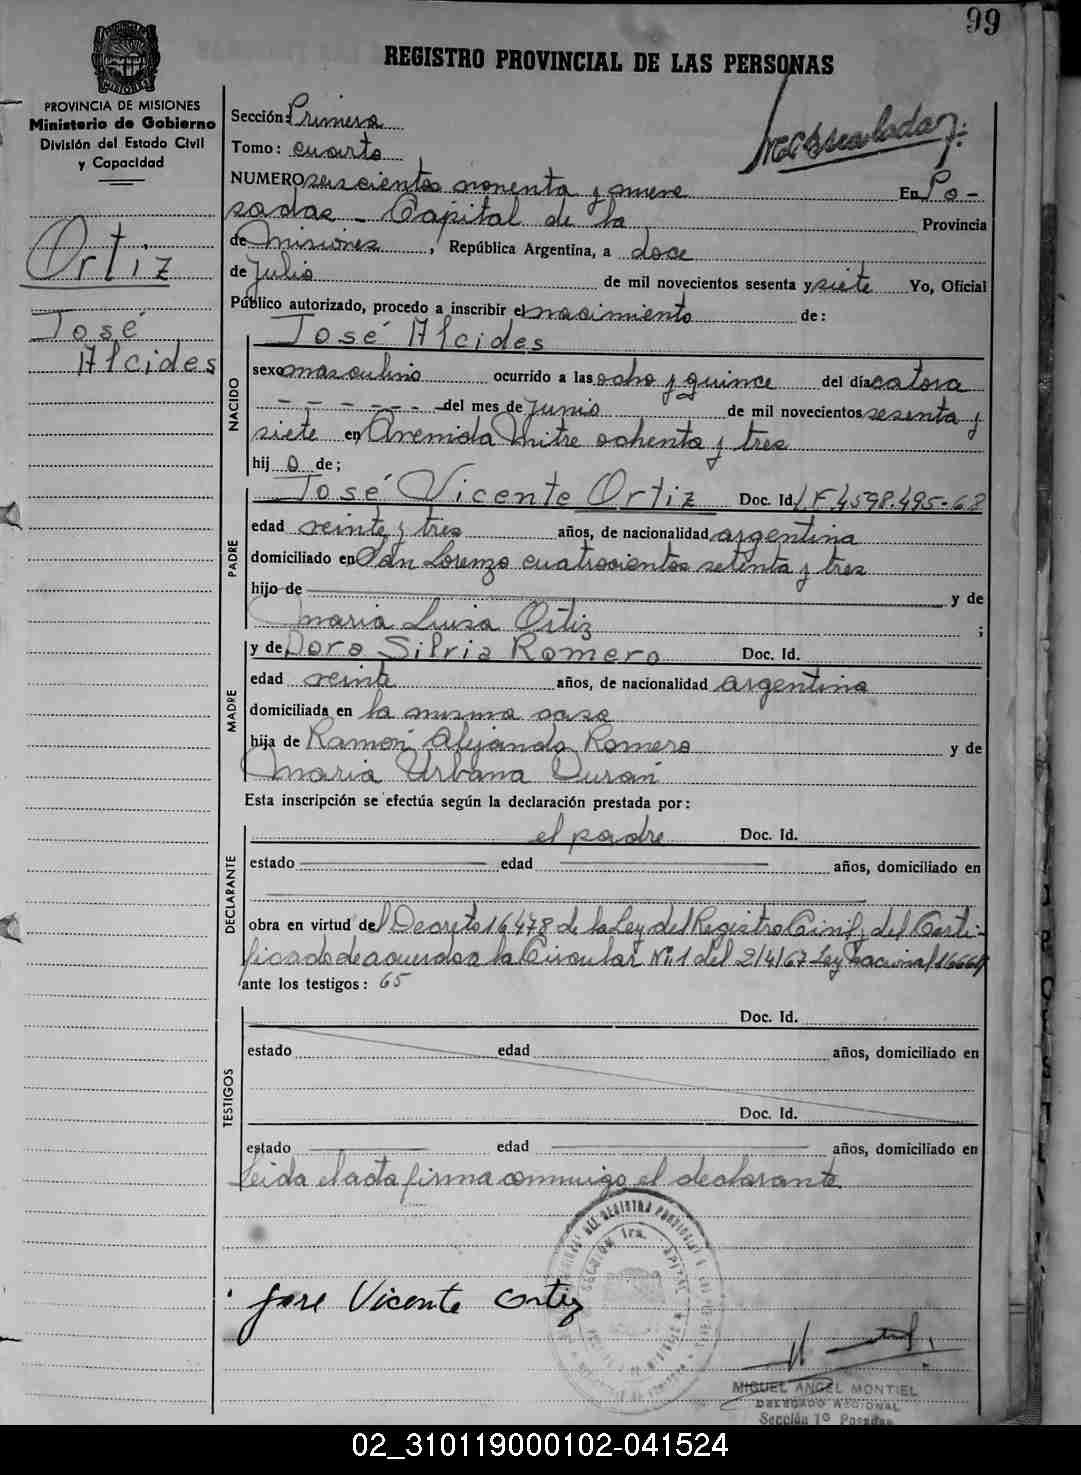 99
REGISTRO PROVINCIAL DE LAS PERSONAS
PROVINCIA DE MISIONES
Ministerio de Gobierno
División del Estado Civil
y Capacidad
Ortiz
José
Alcides
Sección: Primera
Tomo: cuarto
NUMERO seiscientos nonenta y nueve En Po-
sadas - Capital de la Provincia
de Misiones, República Argentina, a doce
de Julio de mil novecientos sesenta y siete Yo, Oficial
Público autorizado, procedo a inscribir el nacimiento de:
NACIDO
José Alcides
sexo masculino ocurrido a las ocho y quince del día catorce
- - - - - - - del mes de Junio de mil novecientos sesenta y
siete en Avenida Mitre ochenta y tres
hij o de;
PADRE
José Vicente Ortiz Doc. Id.
edad veinte y tres años, de nacionalidad argentina
domiciliado en San Lorenzo cuatrocientos setenta y tres
hijo de y de
Maria Luisa Ortiz ;
MADRE
y de Dora Silvia Romero Doc. Id.
edad veinte años, de nacionalidad argentina
domiciliada en la misma casa
hija de Ramón Alejandro Romero y de
Maria Urbana Duran
Esta inscripción se efectúa según la declaración prestada por:
DECLARANTE
el padre Doc. Id.
estado edad años, domiciliado en
obra en virtud del Decreto 16478 de la Ley del Registro Civil y del Certi-
ficado de acuerdo a la Circular Nº 1 del 2/4/67 Ley Nacional
ante los testigos: 65
TESTIGOS
Doc. Id.
estado edad años, domiciliado en
Doc. Id.
estado edad años, domiciliado en
Leida el acta firma conmigo el declarante
Jose Vicente Ortiz
MIGUEL ANGEL MONTIEL
DELEGADO REGIONAL
Sección 1º Posadas
02_310119000102-041524